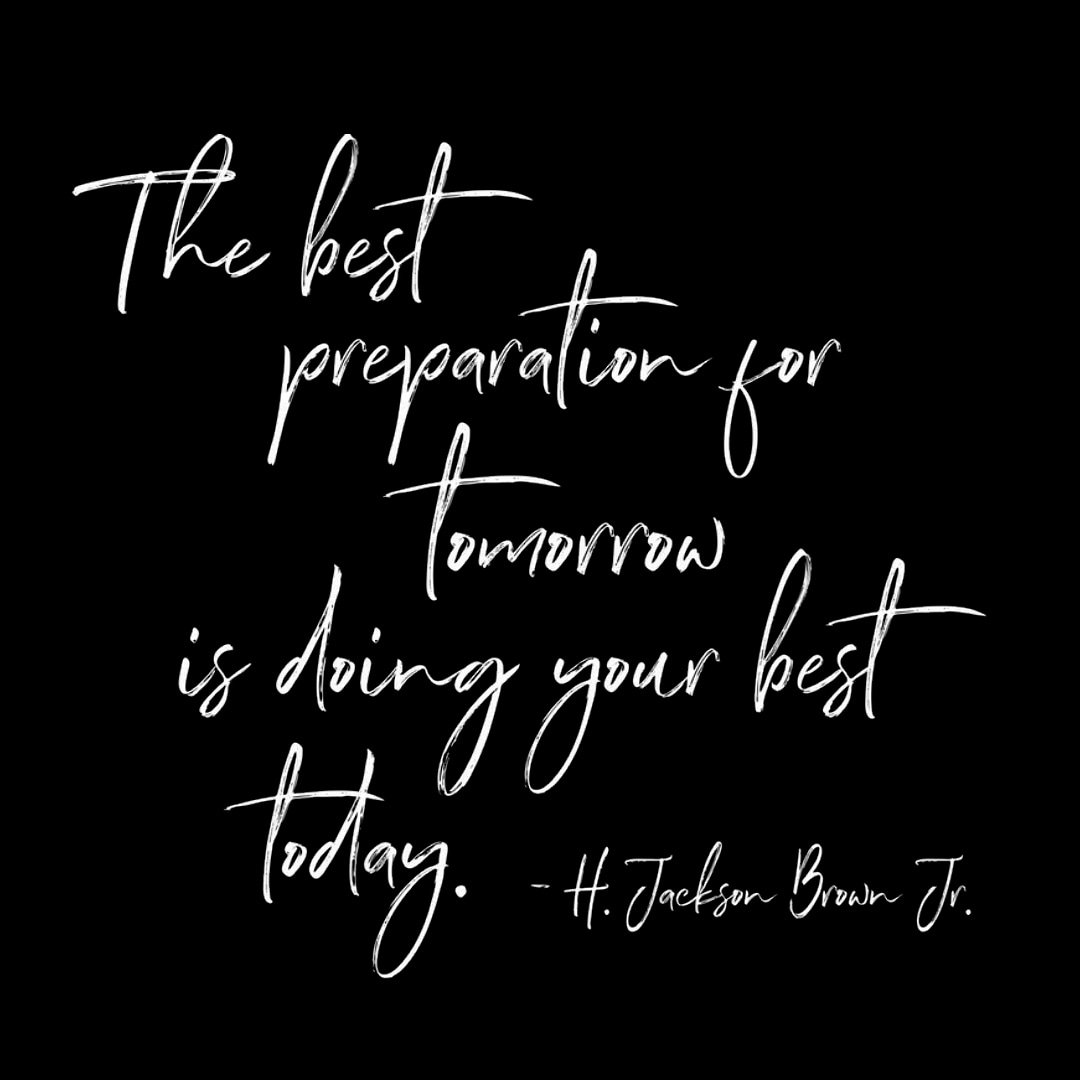 The best
preparation for
tomorrow
is doing your best
today.
- H. Jackson Brown Jr.